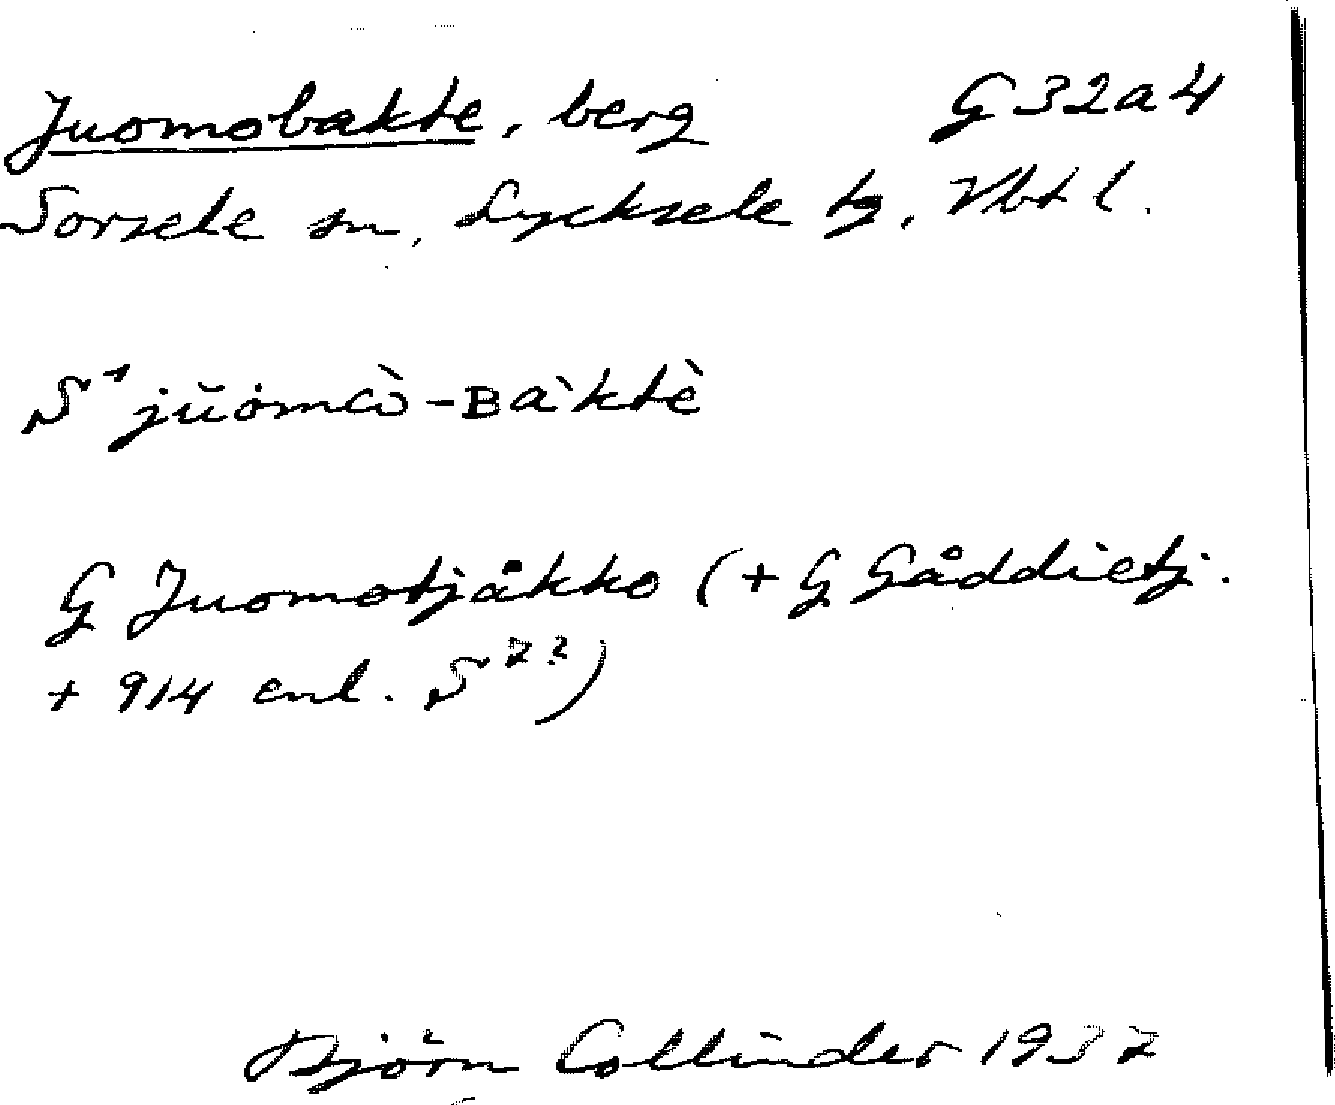 Juomobakte, berg G 32a4
Sorsele sn, Lycksele tg, Vbt l.
S⁺ jŭȯmɑ̀-ʙàktè
G Juomotjåkko (+ G Gåddietj.
+ 914 enl. S²²)
Björn Collinder 1937